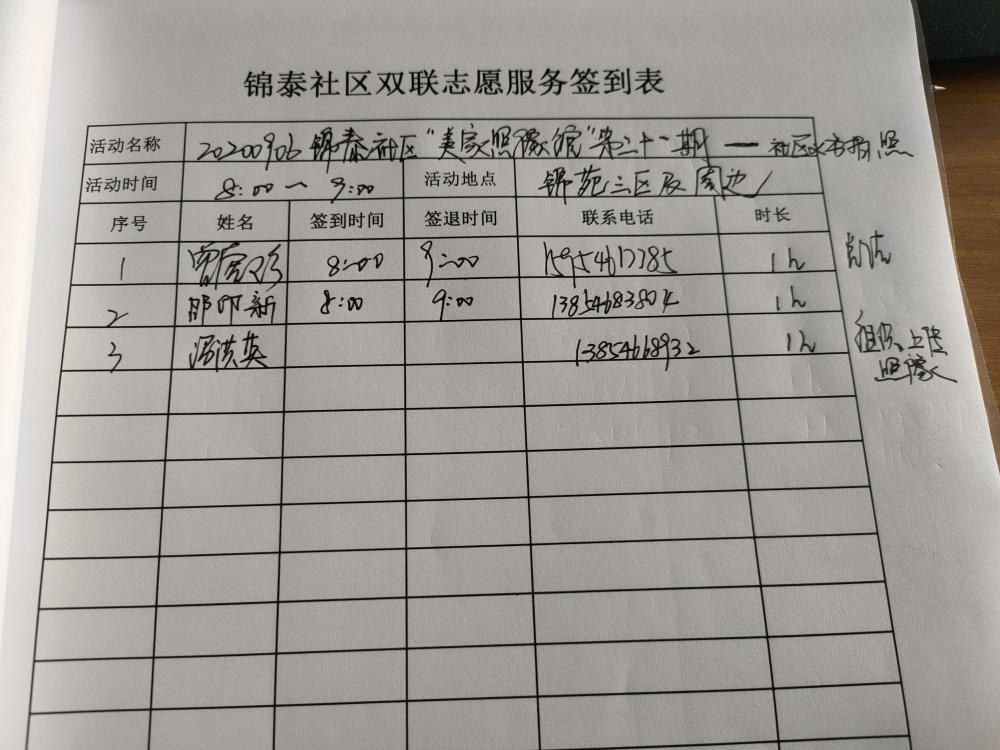 锦泰社区双联志愿服务签到表
活动名称 20200906 锦泰社区“美家照像馆”第二十一期 — 社区 拍照
活动时间 8:00 — 9:00 活动地点 锦苑三区及周边
序号 姓名 签到时间 签退时间 联系电话 时长
1 8:00 9:00 15954617785 1h
2 邢印新 8:00 9:00 13854683804 1h
3 洪英 13854668932 1h
组织、上传
照像